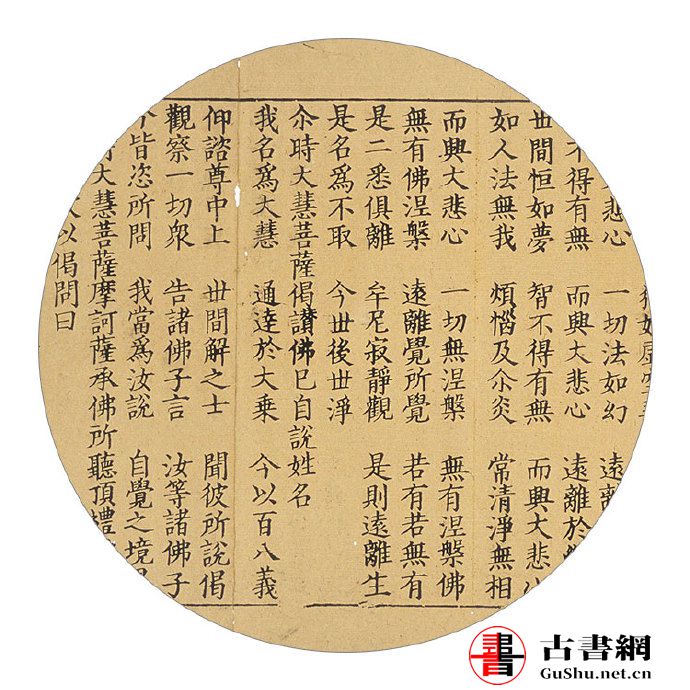 如虛
大悲心 一切法如幻 遠離
不得有無 而興大悲心 遠離於
世間恒如夢 智不得有無 而興大悲
如人法無我 煩惱及尒炎 常清淨無相
而興大悲心 一切無涅槃 無有涅槃佛
無有佛涅槃 遠離覺所覺 若有若無有
是二悉俱離 牟尼寂靜觀 是則遠離生
是名爲不取 今世後世淨
尒時大慧菩薩偈讚佛已自說姓名
我名爲大慧 通達於大乘 今以百八義
仰諮尊中上 世間解之士 聞彼所說偈
觀察一切衆 告諸佛子言 汝等諸佛子
皆恣所問 我當爲汝說 自覺之境
大慧菩薩摩訶薩承佛所聽頂禮
以偈問曰
古書網
GuShu.net.cn